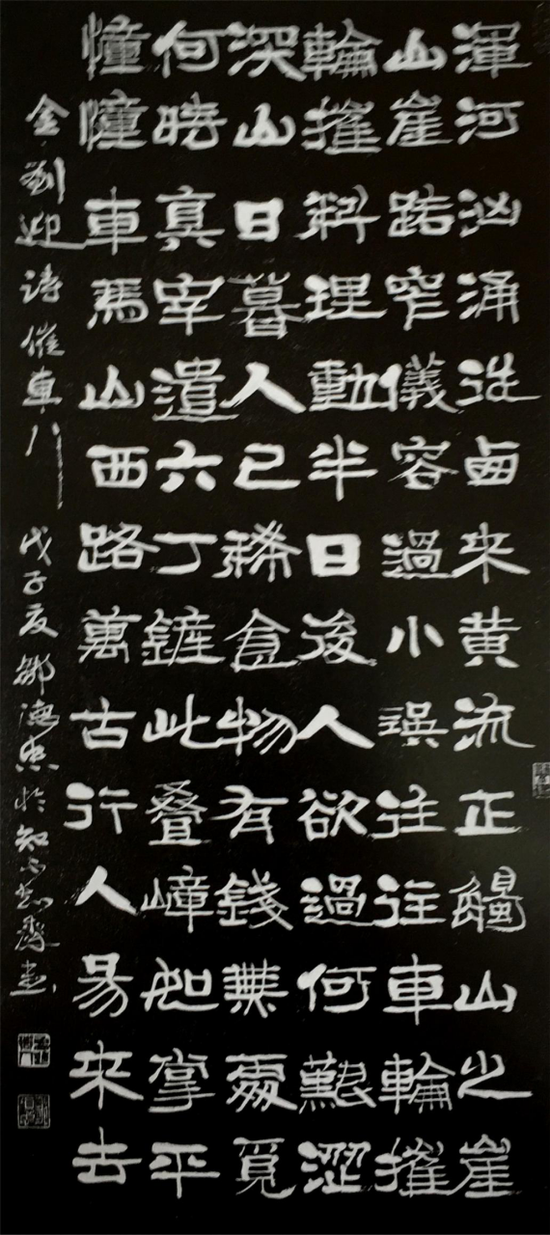 渾河汹涌從鹵来黄流正觸山之崖
山崖路窄儀容過小誤往往車輪摧
輪摧料理動半日後人欲過何艱澀
深山日暮人已稀食物有錢無處覓
何時真宰遣六丁鏟此叠嶂如掌平
憧憧車馬山西路萬古行人易来去
金劉迎詩催車行 戊子夏鄒海於知不知齋書